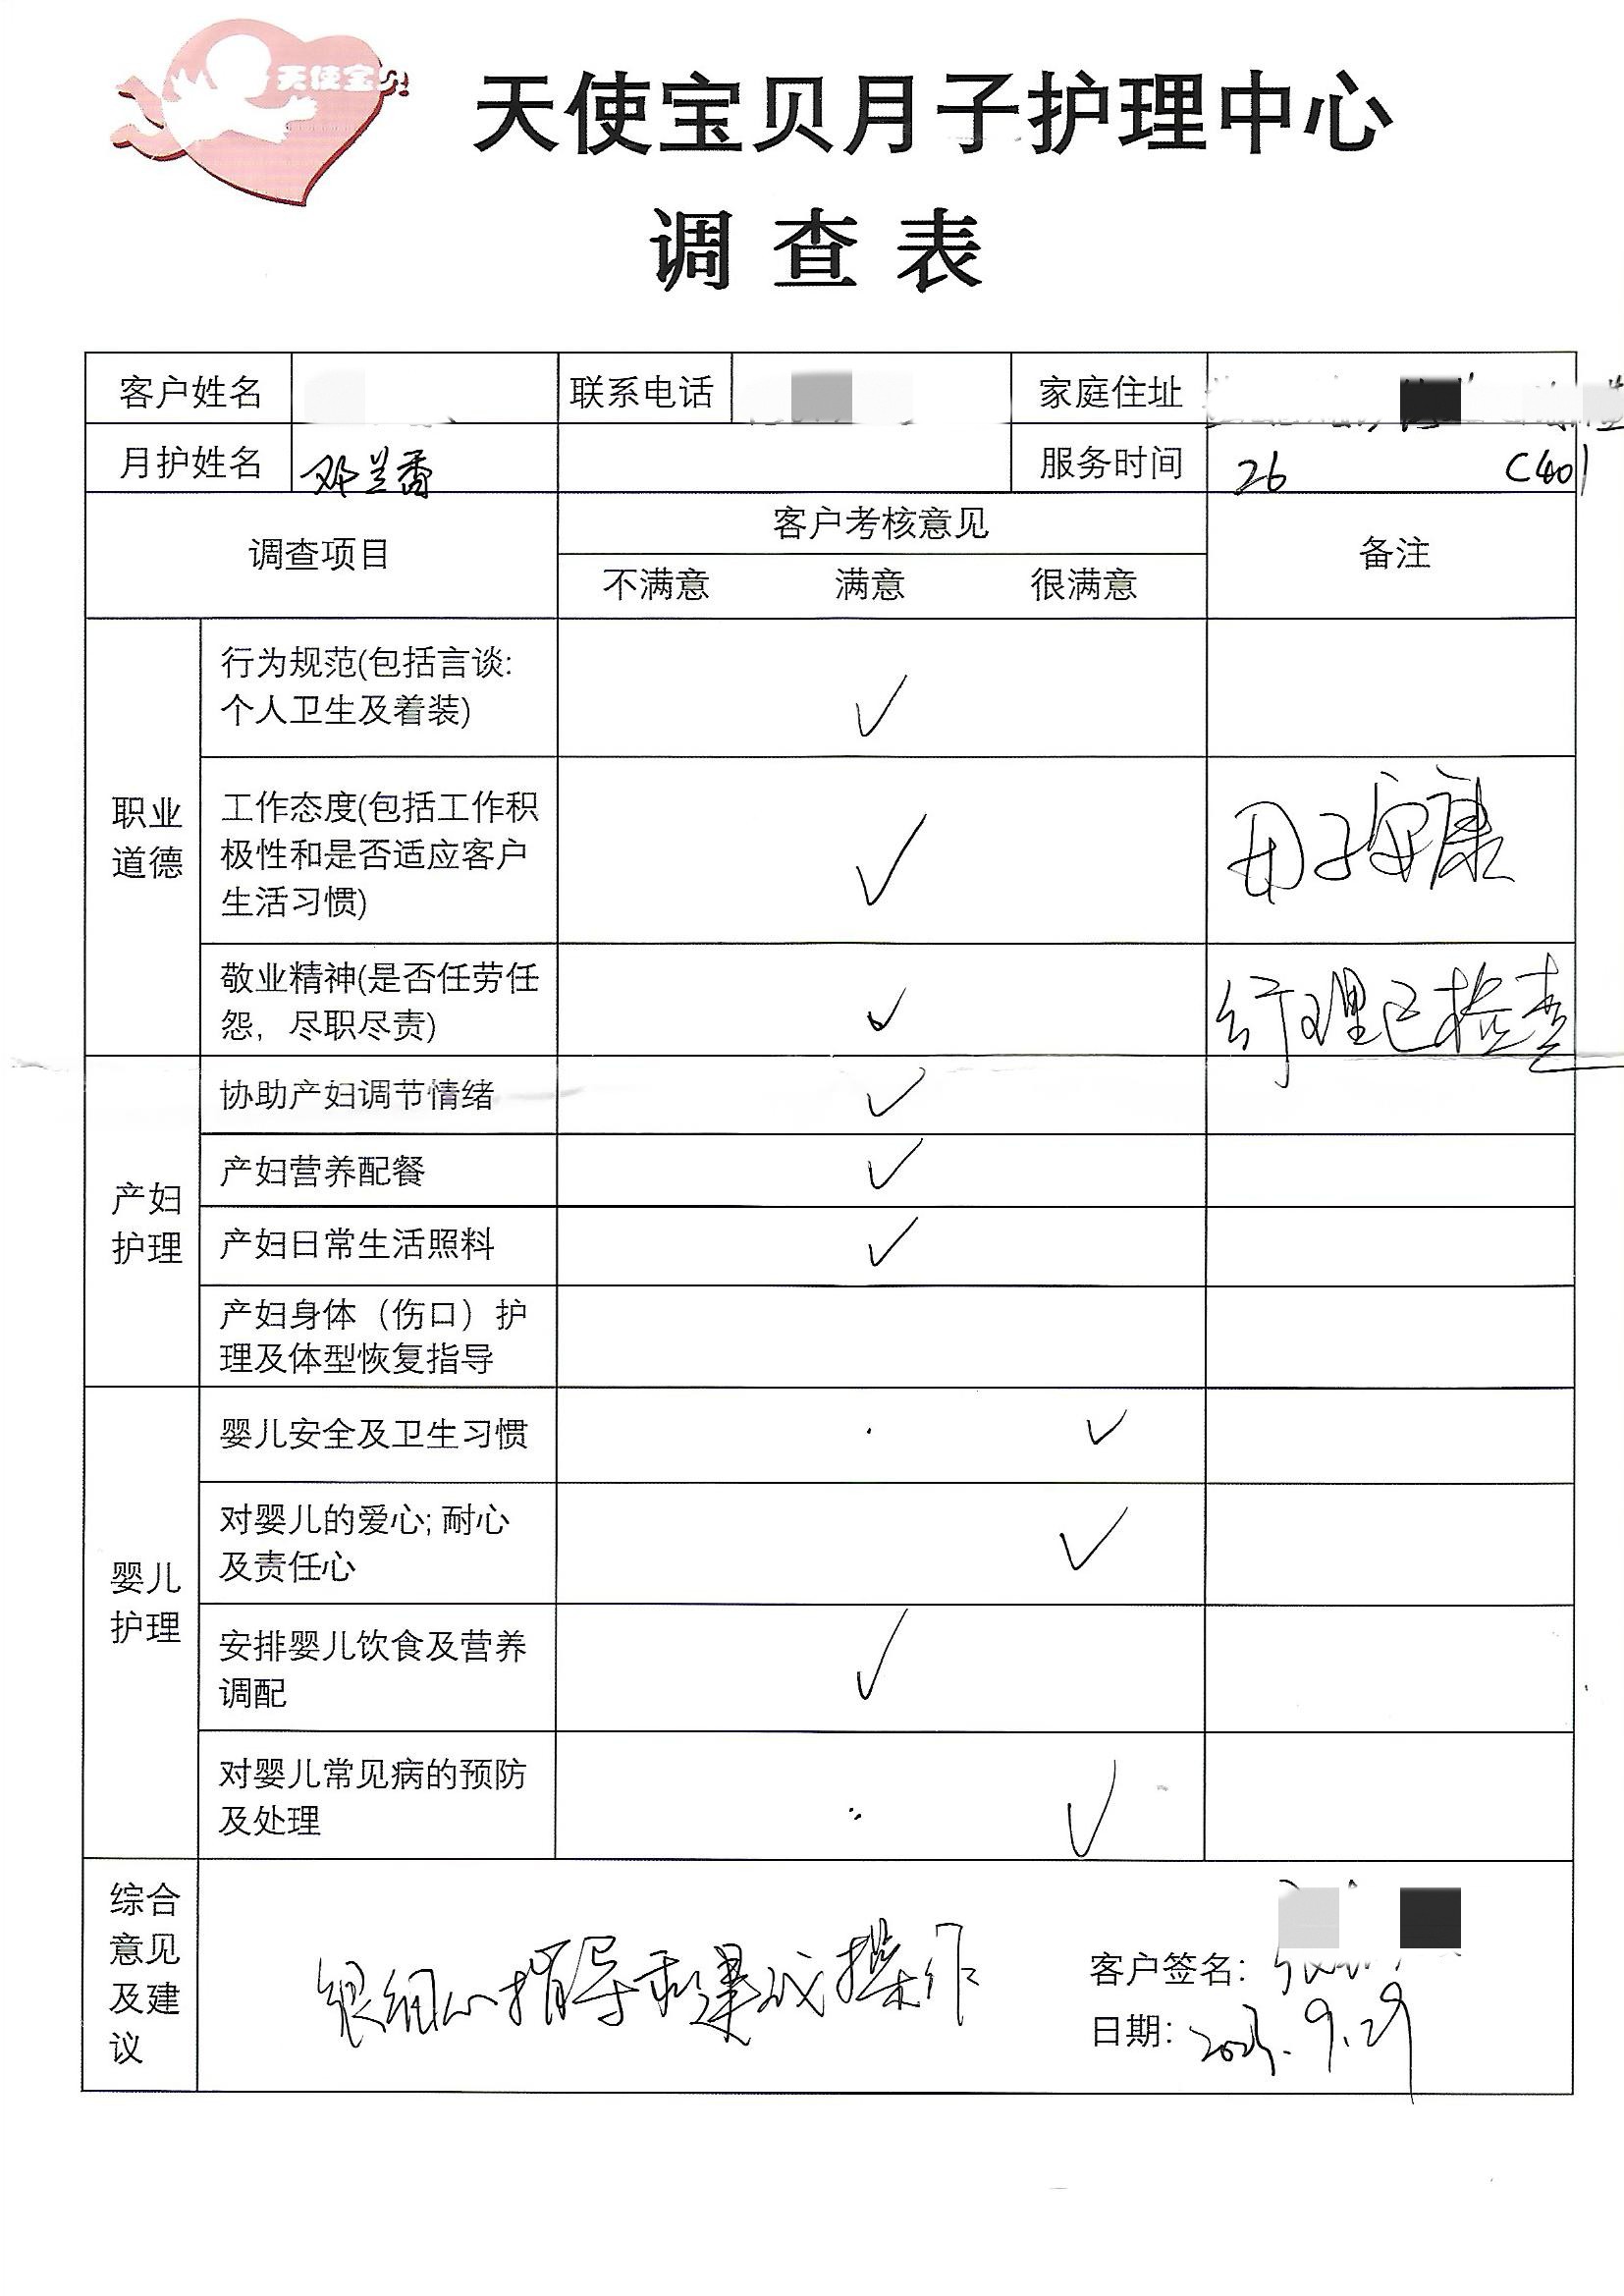 天使宝贝
天使宝贝月子护理中心
调查表
客户姓名 联系电话 家庭住址
月护姓名 邓兰香 服务时间 26 C401
调查项目 客户考核意见 备注
不满意 满意 很满意
职业道德
行为规范(包括言谈:
个人卫生及着装)
工作态度(包括工作积
极性和是否适应客户
生活习惯)
母子安康
敬业精神(是否任劳任
怨，尽职尽责)
行理已检查
产妇护理
协助产妇调节情绪
产妇营养配餐
产妇日常生活照料
产妇身体（伤口）护
理及体型恢复指导
婴儿护理
婴儿安全及卫生习惯
对婴儿的爱心; 耐心
及责任心
安排婴儿饮食及营养
调配
对婴儿常见病的预防
及处理
综合
意见
及建
议
很细心指导和建议操作
客户签名:
日期: 9.29